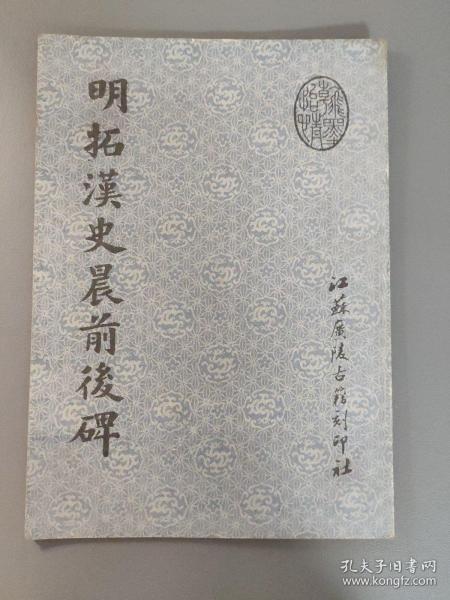 明拓漢史晨前後碑
江蘇廣陵古籍刻印社
孔夫子旧书网
www.kongfz.com